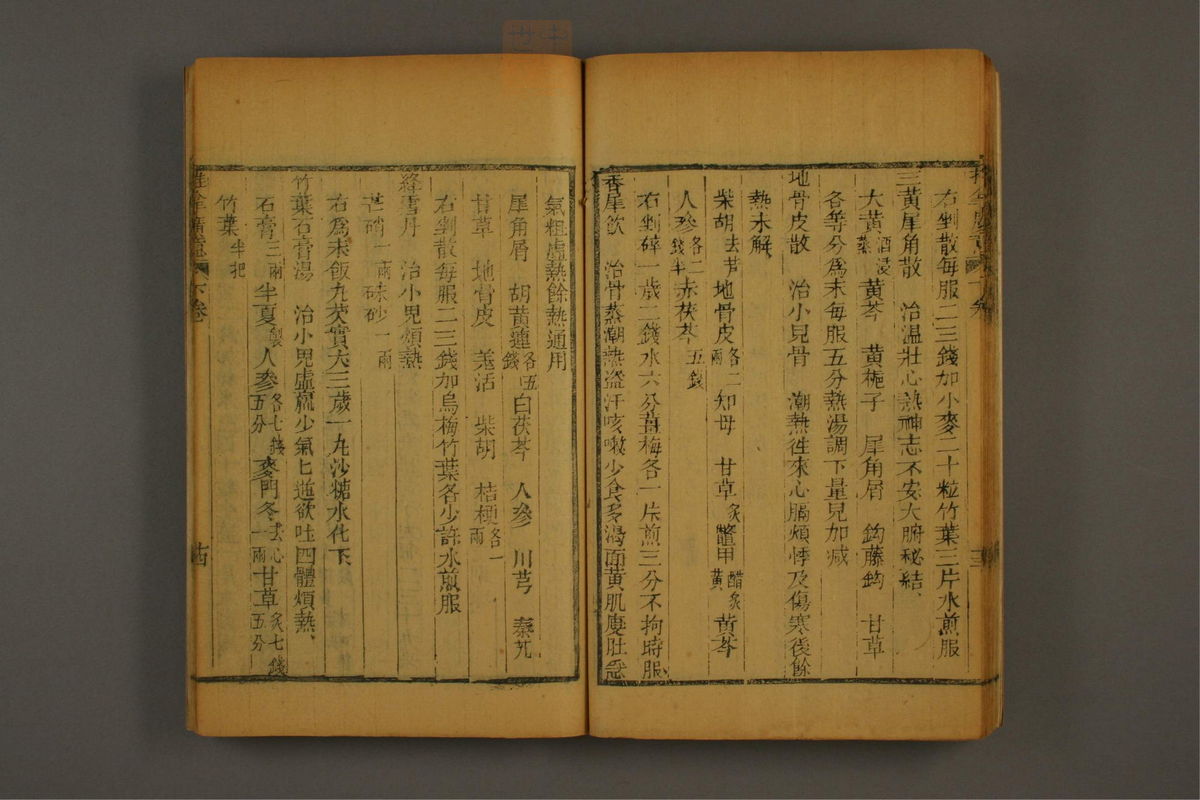 右剉散每服二三錢加小麥二十粒竹葉三片水煎服
三黃犀角散　治温壯心熱神志不安大腑秘結、
大黃酒浸蒸　黃芩　黃梔子　犀角屑　鈎藤鈎　甘草
各等分爲末每服五分熱湯調下量兒加减
地骨皮散　治小兒骨　潮熱徃來心膈煩悸及傷寒後餘
熱未解
柴胡去芦　地骨皮各二兩　知母　甘草炙　鼈甲醋炙黃　黃芩
人參各二錢半　赤茯苓五錢
右剉碎一歲二錢水六分薑梅各一片煎三分不拘時服
香犀飲　治骨蒸潮熱盜汗咳嗽少食多渴面黃肌瘦肚急
下卷
氣粗虛熱餘熱通用
犀角屑　胡黃連各五錢　白茯苓　人參　川芎　秦艽
甘草　地骨皮　羗活　柴胡　桔梗各一兩
右剉散每服二三錢加烏梅竹葉各少許水煎服
絳雪丹　治小兒煩熱
芒硝一兩　硃砂一兩
右爲末飯丸芡實大三歲一丸沙糖水化下
竹葉石膏湯　治小兒虛羸少氣匕逆欲吐四體煩熱、
石膏三兩　半夏製　人參各七錢五分　麥門冬去心一兩　甘草炙七錢五分
竹葉半把
下卷